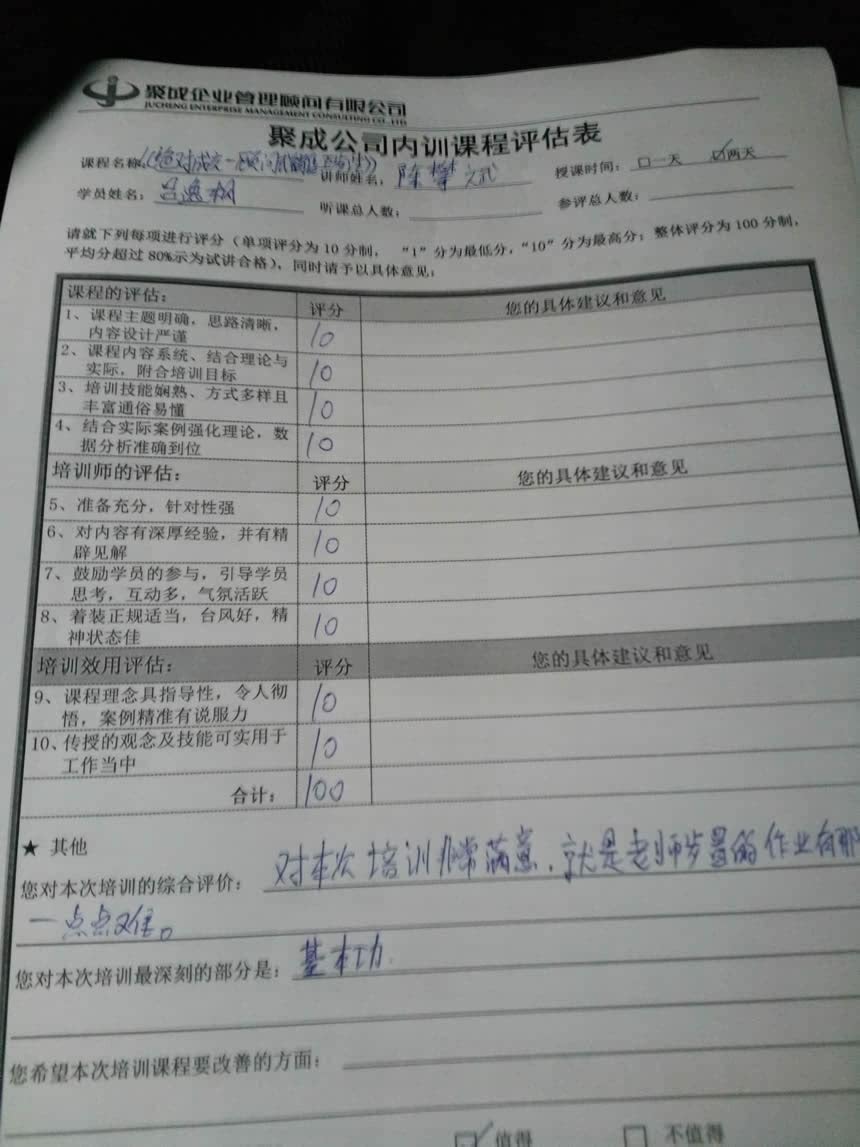 聚成企业管理顾问有限公司
JUCHENG ENTERPRISE MANAGEMENT CONSULTING CO.,LTD
聚成公司内训课程评估表
课程名称：《绝对成交－顾问式销售 讲师姓名：陈攀斌 授课时间：□一天 ☑两天
学员姓名：吕逸翔 听课总人数： 参评总人数：
请就下列每项进行评分（单项评分为 10 分制， “1”分为最低分，“10”分为最高分；整体评分为 100 分制，
平均分超过 80%示为试讲合格），同时请予以具体意见：
课程的评估： 评分 您的具体建议和意见
1、课程主题明确，思路清晰，
内容设计严谨 10
2、课程内容系统、结合理论与
实际，附合培训目标 10
3、培训技能娴熟、方式多样且
丰富通俗易懂 10
4、结合实际案例强化理论，数
据分析准确到位 10
培训师的评估： 评分 您的具体建议和意见
5、准备充分，针对性强 10
6、对内容有深厚经验，并有精
辟见解 10
7、鼓励学员的参与，引导学员
思考，互动多，气氛活跃 10
8、着装正规适当，台风好，精
神状态佳 10
培训效用评估： 评分 您的具体建议和意见
9、课程理念具指导性，令人彻
悟，案例精准有说服力 10
10、传授的观念及技能可实用于
工作当中 10
合计： 100
★ 其他
您对本次培训的综合评价： 对本次培训非常满意，就是老师步置的作业有那
一点点难。
您对本次培训最深刻的部分是： 基本功.
您希望本次培训课程要改善的方面：
☑值得 □ 不值得